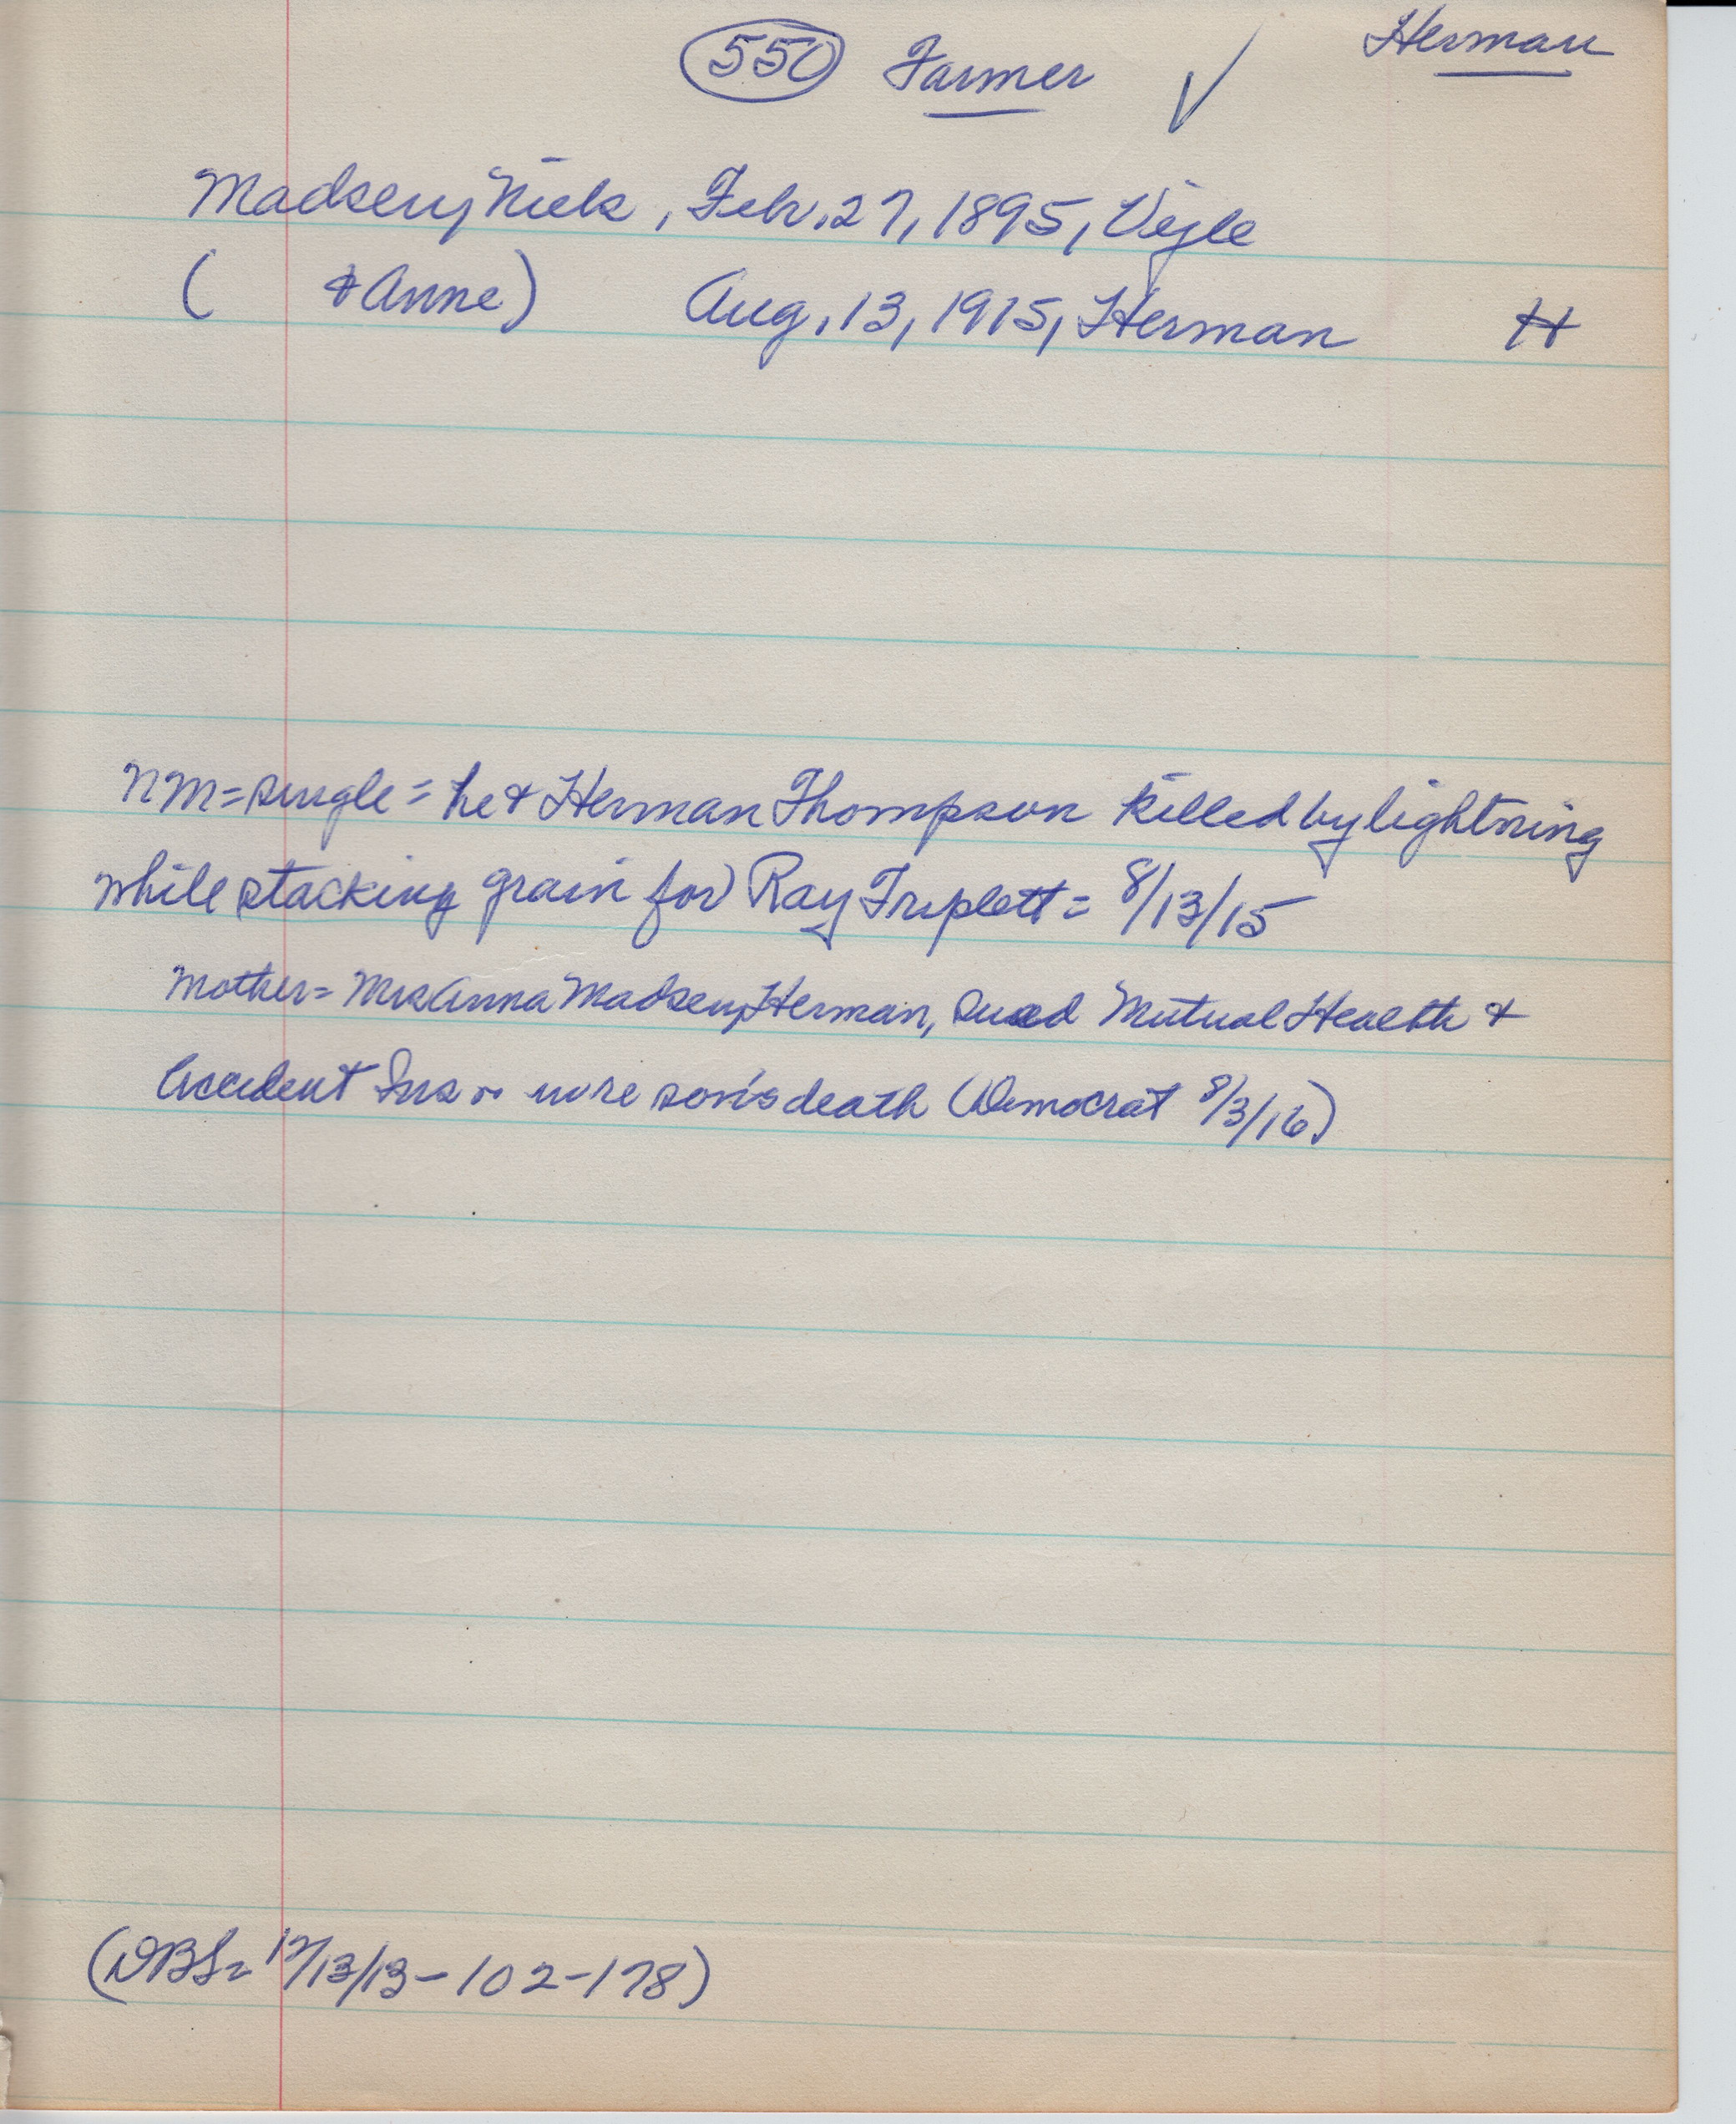 550 Farmer ✓ Herman
Madsen, Niels, Feb. 27, 1895, Vejle
( & Anne) Aug. 13, 1915, Herman H
NM = single = he & Herman Thompson killed by lightning
while stacking grain for Ray Triplett = 8/13/15
Mother = Mrs Anna Madsen, Herman, sued Mutual Health &
Accident Ins re son's death (Democrat 8/3/16)
(DBS= 12/13/13-102-178)